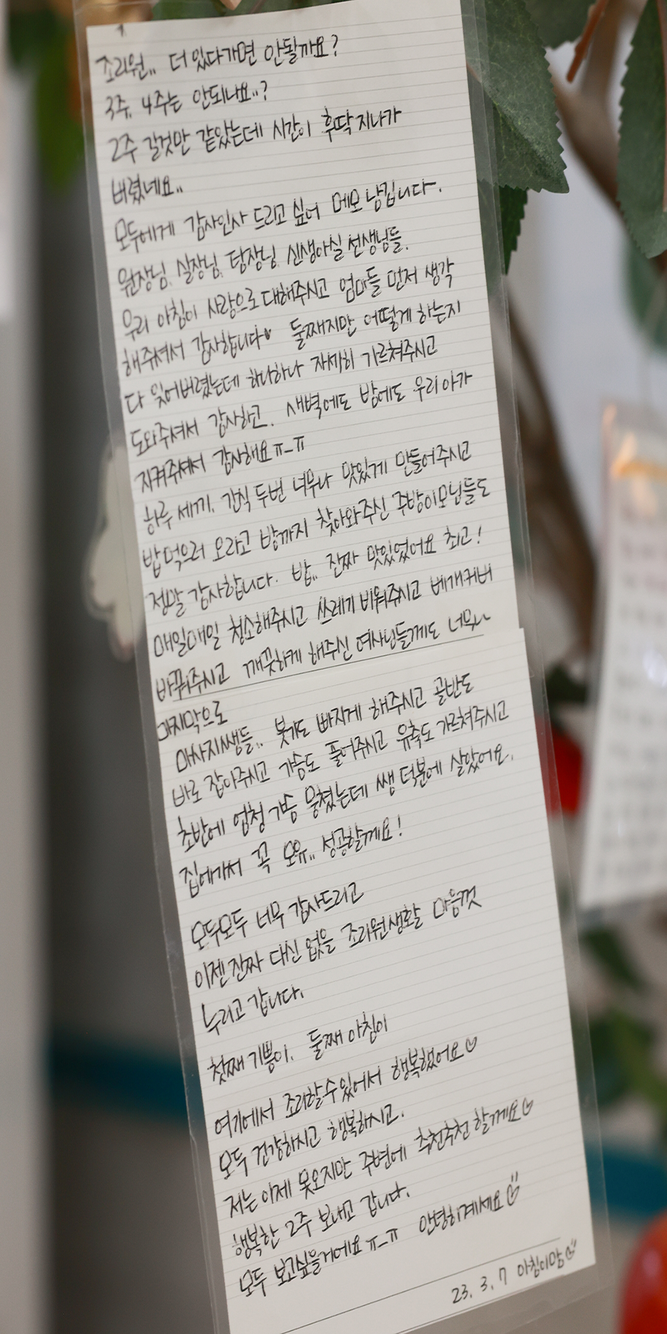 조리원.. 더 있다가면 안될까요?
3주, 4주는 안되나요..?
2주 길것만 같았는데 시간이 후딱 지나가
버렸네요..
모두에게 감사인사 드리고 싶어 메모 남깁니다.
원장님, 실장님, 팀장님, 신생아실 선생님들.
우리 아침이 사랑으로 대해주시고 엄마들 먼저 생각
해주셔서 감사합니다♥ 둘째지만 어떻게 하는지
다 잊어버렸는데 하나하나 자세히 가르쳐주시고
도와주셔서 감사하고. 새벽에도 밤에도 우리아가
지켜주셔서 감사해요ㅠ_ㅠ
하루 세끼, 간식 두번 너무나 맛있게 만들어주시고
밥먹으러 오라고 방까지 찾아와주신 주방이모님들도
정말 감사합니다. 밥.. 진짜 맛있었어요 최고!
매일매일 청소해주시고 쓰레기 비워주시고 베개커버
바꿔주시고 깨끗하게 해주신 여사님들께도 너무나
마지막으로
마사지쌤들.. 붓기도 빠지게 해주시고 골반도
바로 잡아주시고 가슴도 풀어주시고 유축도 가르쳐주시고
초반에 엄청 가슴 뭉쳤는데 쌤 덕분에 살았어요.
집에가서 꼭 모유.. 성공할께요!
모두모두 너무 감사드리고
이젠 진짜 다신 없을 조리원생활 마음껏
누리고 갑니다.
첫째 기쁨이, 둘째 아침이
여기에서 조리할수있어서 행복했어요
모두 건강하시고 행복하시고.
저는 이제 못오지만 주변에 추천추천 할께요
행복한 2주 보내고 갑니다.
모두 보고싶을거에요ㅠ_ㅠ 안녕히계세요
23. 3. 7 아침이맘